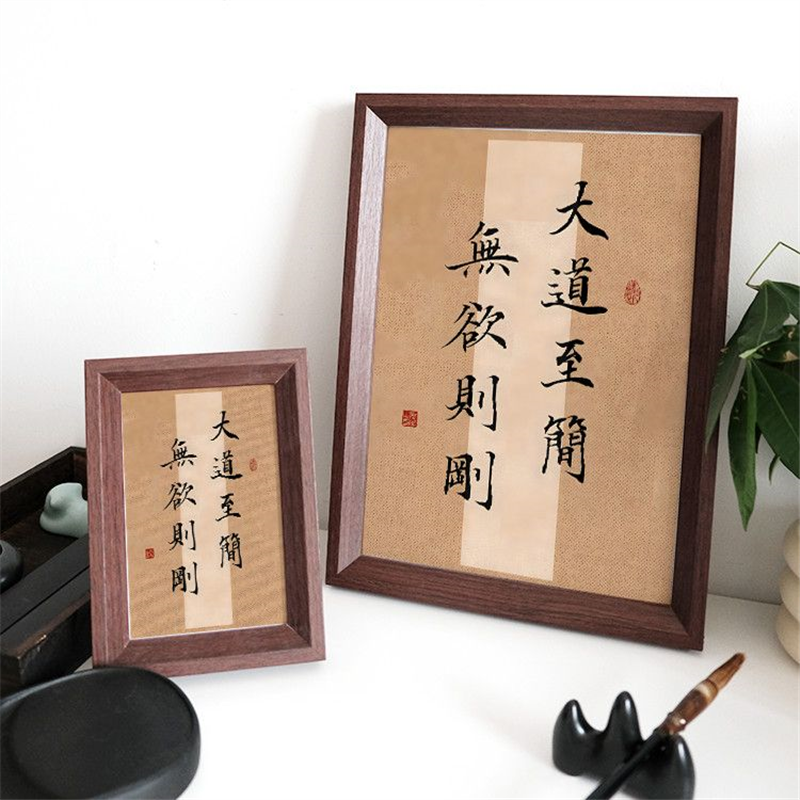 大道至簡
無欲則剛
大道至簡
無欲則剛